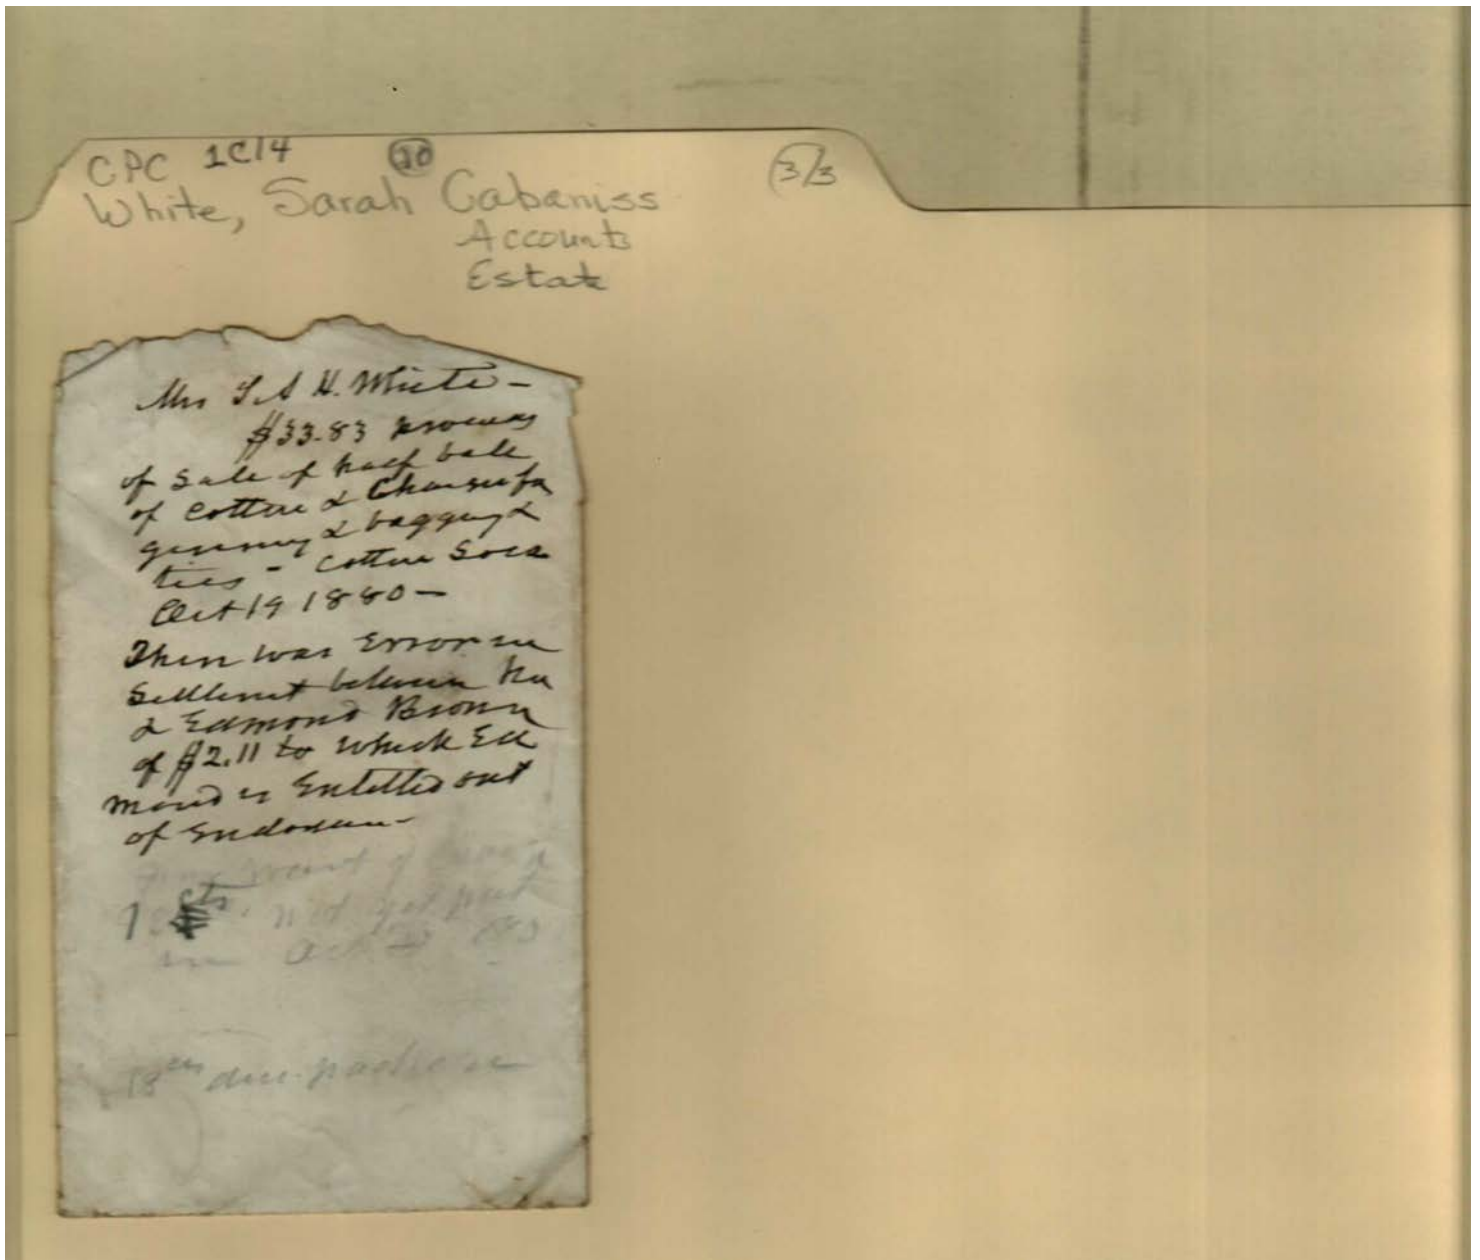 CPC 1C14 20 3/3
White, Sarah Cabaniss
Accounts
Estate
Mrs S A H. White -
$33.83 proceeds
of sale of half bale
of Cotton & Charges for
ginning & bagging &
ties - Cotton Sold
Oct 19 1880 -
There was Error in
Settlement between her
& Edmond Brown
of $2.11 to which Ed
mond is Entitled out
of
of
1 cts. not yet put
in Oct 20
18 cts due